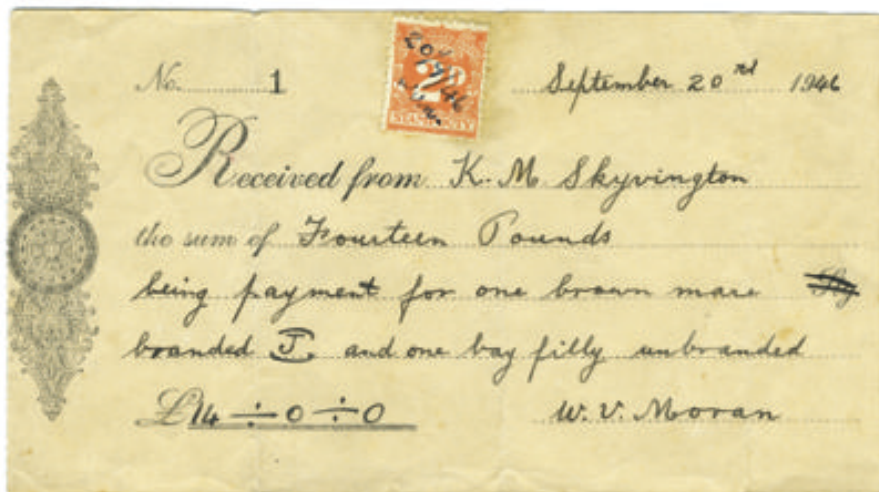 No. 1
20/9/46
2D
STAMP DUTY
September 20rd 1946
Received from K. M Skyvington
the sum of Fourteen Pounds
being payment for one brown mare
branded J and one bay filly unbranded
£14 ÷ 0 ÷ 0
W. V. Moran